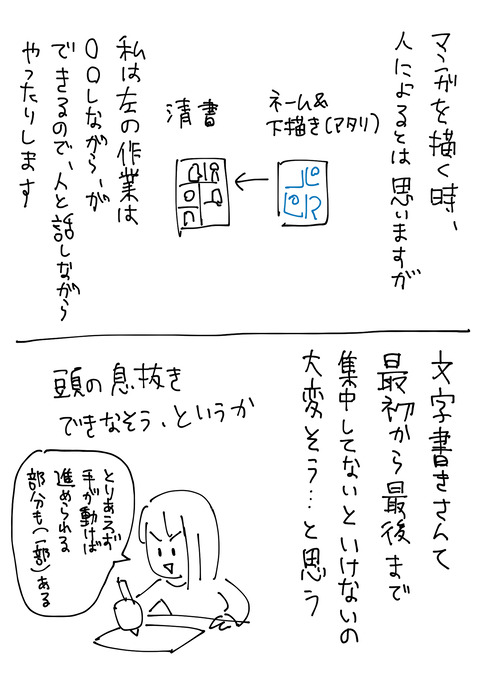 マンガを描く時、
人によるとは思いますが
ネーム&
下描き(アタリ)
清書
私は左の作業は
○○しながら、が
できるので、人と話しながら
やったりします
文字書きさんて
最初から最後まで
集中してないといけないの
大変そう…と思う
頭の息抜き
できなそう、というか
とりあえず
手が動けば
進められる
部分も(一部)ある